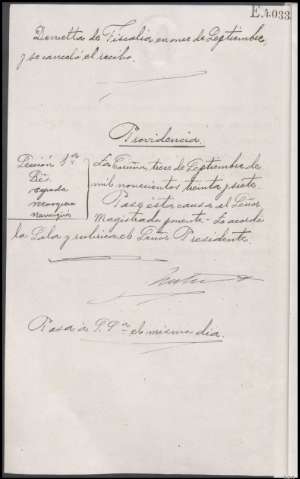 E.4.033
Devuelta de Fiscalía en once de Septiembre
y se canceló el recibo.
Providencia.
Sección 1ª
La Coruña, trece de Septiembre de
mil novecientos treinta y siete.
Pase esta causa al Señor
Magistrado ponente. Lo acordó
la Sala y rubrica el Señor Presidente.
Pasa a el mismo día.